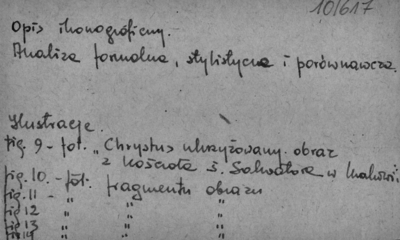 10/617
Opis ikonograficzny.
Analiza formalna, stylistyczna i porównawcza.
Ilustracje.
fig. 9 - fot. „Chrystus ukrzyżowany" obraz
z kościoła ś. Salwatora w
fig. 10. - fot. fragmentu obrazu
fig. 11 - " " "
fig 12 " " "
fig 13 " " "
fig 14 " " "